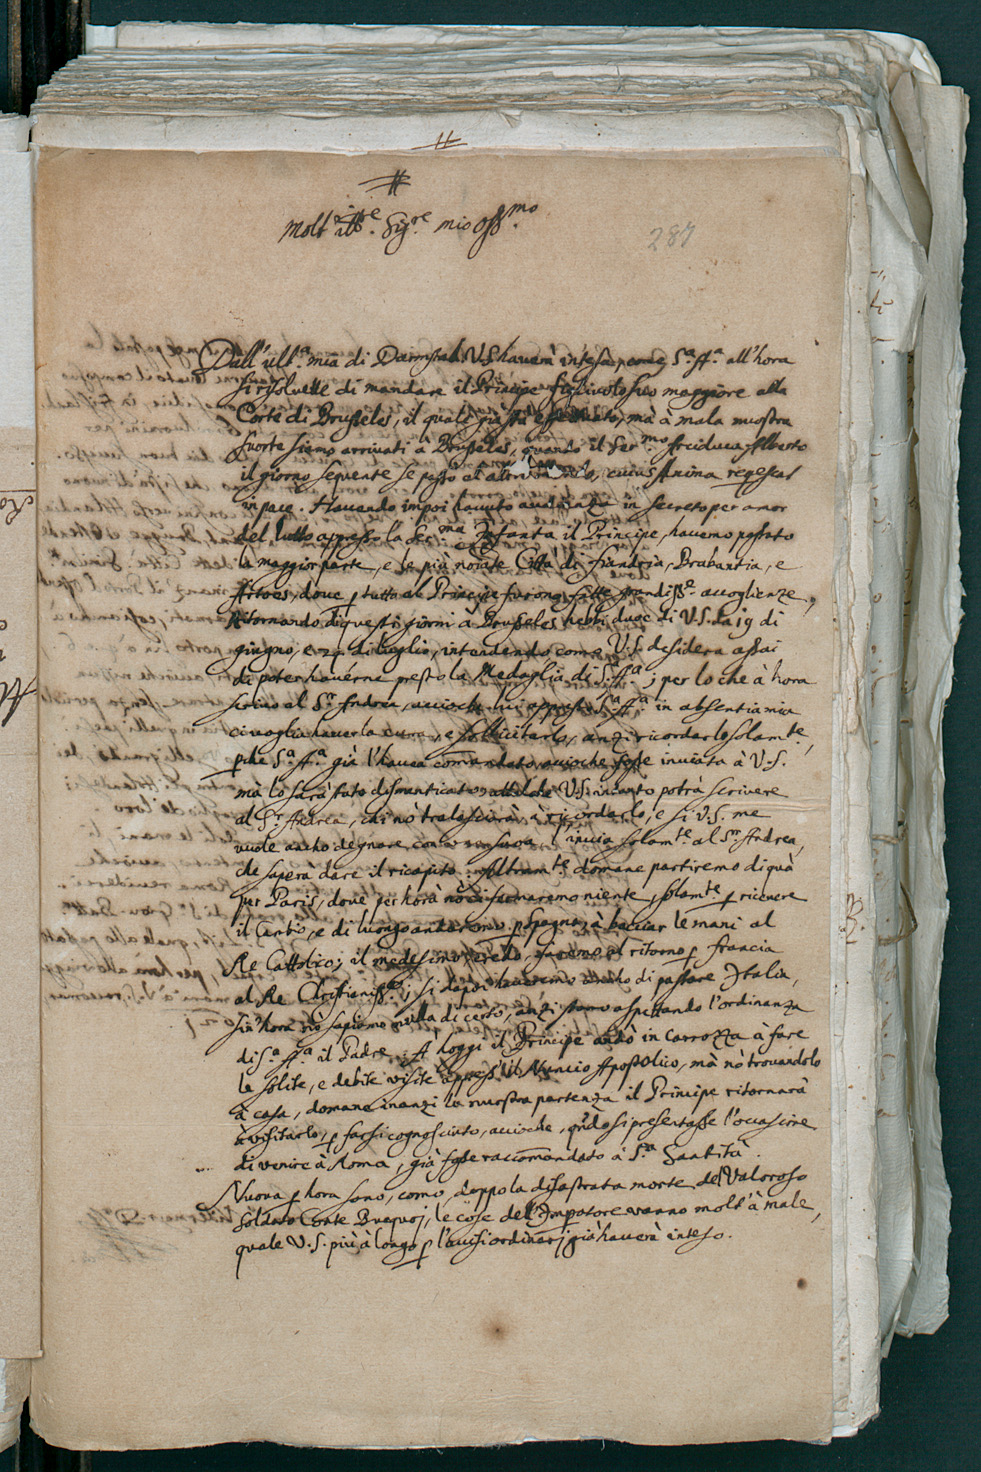 #
#
Molt' ill.re Sig.re mio oss.mo
287
Dall' ult.a mia di Darmstat V.S. haverà intesa, come S.a A.a all'hora
si risolvette di mandare il Principe figlivolo suo maggiore alla
Corte di Brusseles, il quale già stà effettuato, mà à mala nuostra
suorte siamo arrivati à Brusseles, quando il Ser.mo Arciduca Alberto
il giorno sequente se passò al altro mondo, cuius Anima reqescat
in pace. Havendo impoi havuto audienza in secreto per amor
del lutto appresso la Ser.ma Infanta il Principe, havemo passato
la maggior parte, e le più noiate Città di Fiandria, Brabantia, e
Artoes, dove p tutto al Principe furono fatte grandiss.e accoglienze,
Ritornando di questi giorni à Brusseles hebbi duoe di V.S. da 19 di
giugno, e 24 di luglio, intendendo come V.S. desidera assai
di poter havérne presto la Medaglia di S.a A.a; per lo che à hora
scrivo al S.r Andrea, accioche lui appresso S.a A.a in absentia mia
ci voglia haver la cura, e sollicitarlo, anzi ricordarlo solam.te,
p che S.a A.a già l'havea comandato, accioche fosse inviata à V.S.
mà lo sarà stato dismenticato V.S. incanto potrà scrivere
al S.r Andrea, chi nò tralascierà à ricordarlo, e si V.S. me
vuole ancho degnare con l'invia solam.te al S.r Andrea,
che saperà dare il ricapito. Altram.te domane partiremo di quà
per Paris, dove per horà nò ci fermaremo niente, solam.te p ricevere
il Cambio, e di luongo andaremo p Spagna, à bacciar le mani al
Re Cattolico; il medesimo credo, faremo al ritorno p Francia
al Re Christianiss.o; si dapoi haveremo di passare Italia,
sin'hora nò sapiamo nulla di certo, anzi stamo aspettando l'ordinanza
di S.a A.a il Padre. A hoggi il Principe andò in carrozza à fare
le solite, e debite visite appress' il Nuncio Apostolico, mà nò trovandolo
à casa, domane inanzi la nuostra partenza il Principe ritornarà
à visitarlo, p farsi cognosciuto, accioche, qñdo si presentasse l'occasione
di venire à Roma, già fosse raccomandato à S.a Santità.
Nuova p hora sono, como, doppo la disastrata morte del Valoroso
soldato Conte Buquoj, le cose dell' Imperatore vanno molt' à male,
quale V.S. più à longo p l'avisi ordinarj già haverà inteso.